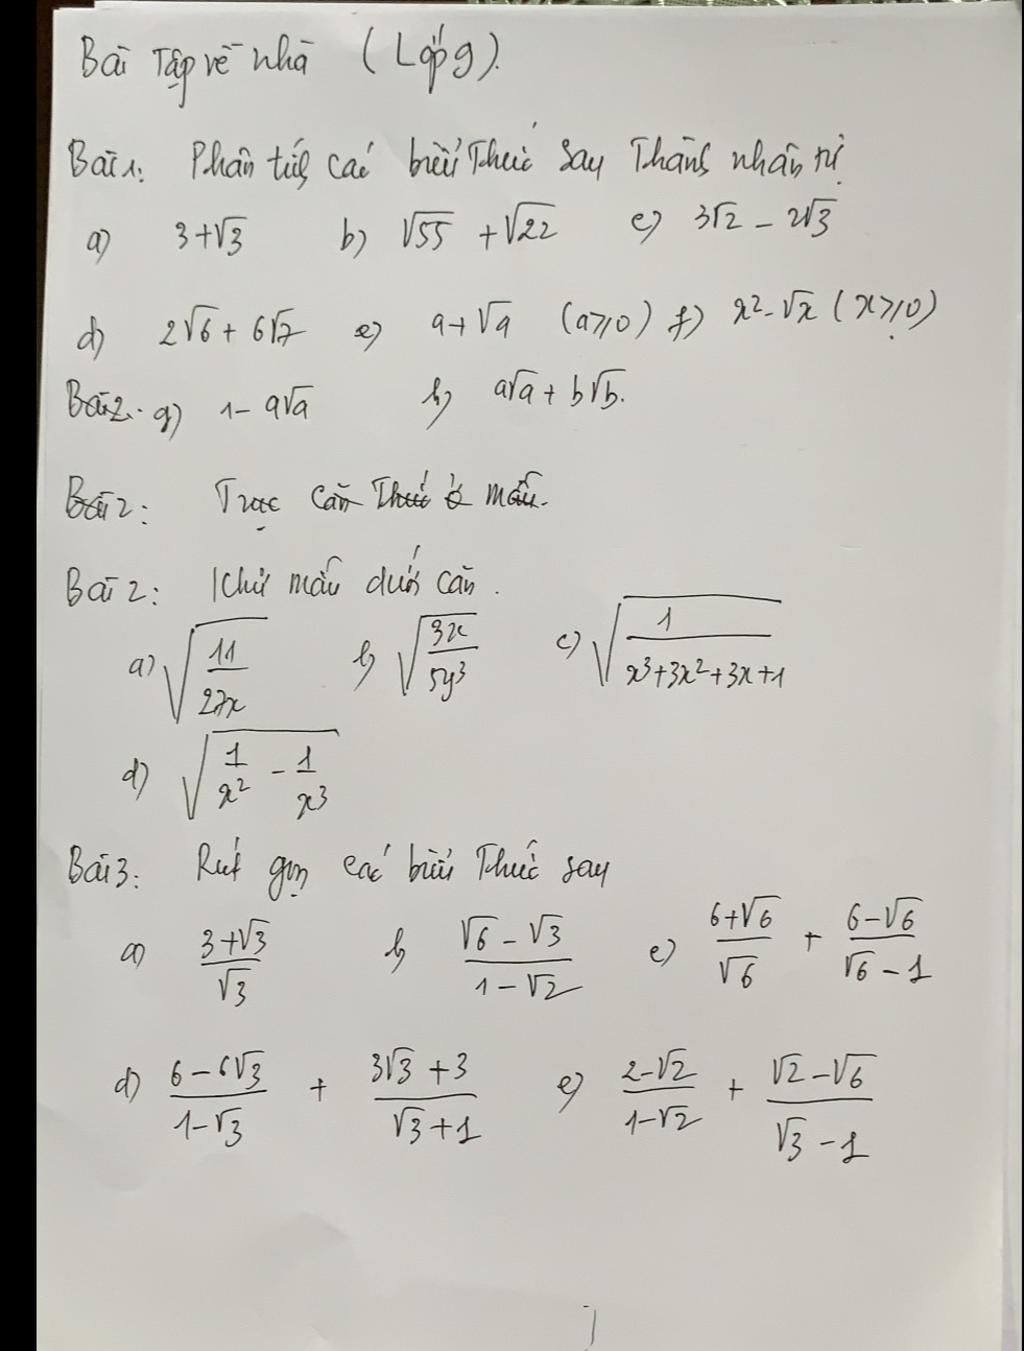 Bài Tập về nhà (Lớp 9).
Bài 1: Phân tích các biểu Thức sau Thành nhân tử
a) 3+√3 b) √55 + √22 c) 3√2 - 2√3
d) 2√6 + 6√7 e) a+√a (a≥0) f) x² - √x (x≥0)
Bài 2. g) 1 - a√a h) a√a + b√b.
Bài 2: Trục căn Thức ở mẫu.
Bài 2: Khử mẫu dưới căn.
a) √(11/27x) b) √(3x/5y³) c) √(1/(x³+3x²+3x+1))
d) √(1/x² - 1/x³)
Bài 3: Rút gọn các biểu Thức sau
a) (3+√3)/√3 b) (√6-√3)/(1-√2) c) (6+√6)/√6 + (6-√6)/(√6-1)
d) (6-6√3)/(1-√3) + (3√3+3)/(√3+1) e) (2-√2)/(1-√2) + (√2-√6)/(√3-1)